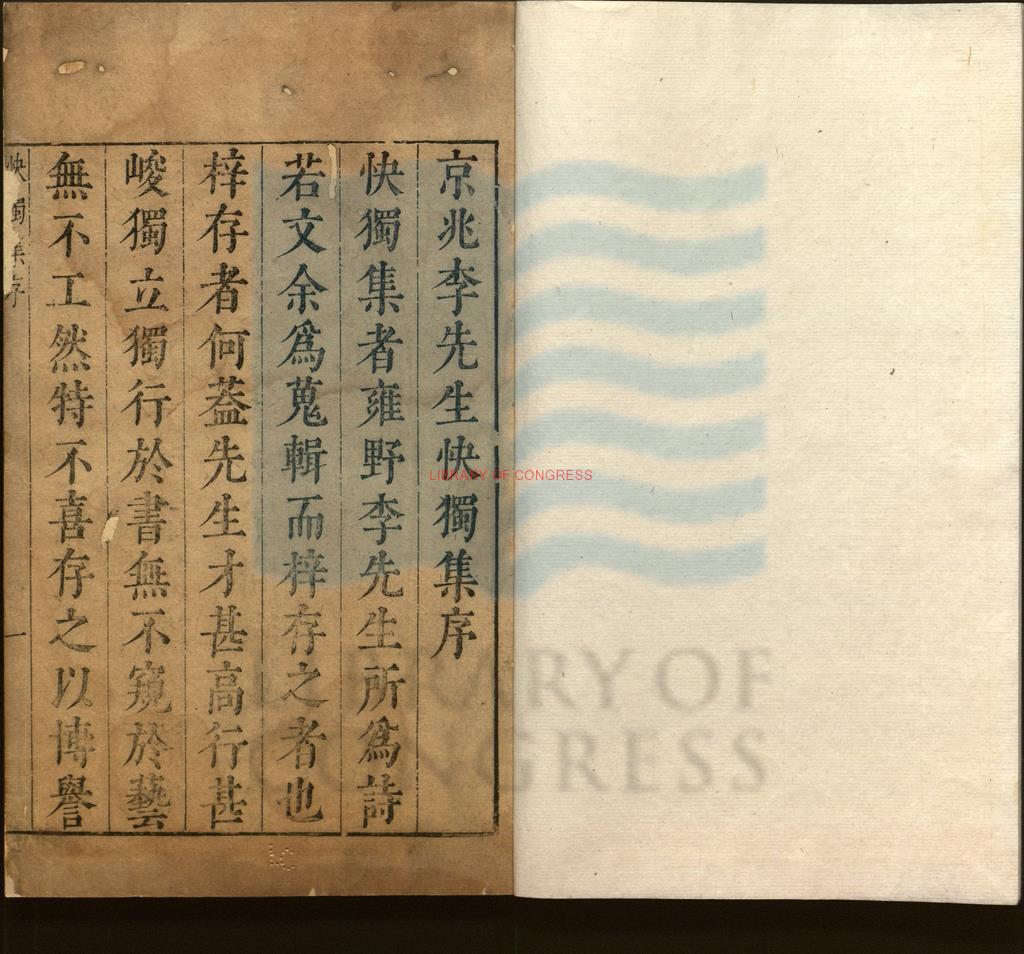 京兆李先生快獨集序
快獨集者雍野李先生所爲詩
若文余爲蒐輯而梓存之者也
梓存者何蓋先生才甚高行甚
峻獨立獨行於書無不窺於藝
無不工然特不喜存之以博譽
快獨集序
一
LIBRARY OF CONGRESS
LIBRARY OF
CONGRESS